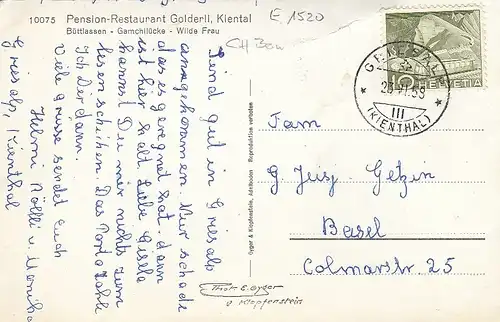 10075 Pension-Restaurant Golderli, Kiental
Büttlassen - Gamchilücke - Wilde Frau
E 1520
CH Bow
Sind gut in Griesalp
angekommen. Nur schade
das es geregnet hat. dann
ist hier kalt. Liebe Gisella
kannst Du mir nichts zum
lesen schiken. Das Porto zahle
Ich Dir dann.
Viele grüsse sendet Euch
Helmi Nölli u. Monika
Griesalp, Kienthal
HELVETIA
10
III
(KIENTHAL)
Fam
G. Jusy. Gezin
Basel
Colmarstr 25
Gyger & Klopfenstein, Adelboden
Reproduktion verboten
Phot E. Gyger
v Klopfenstein